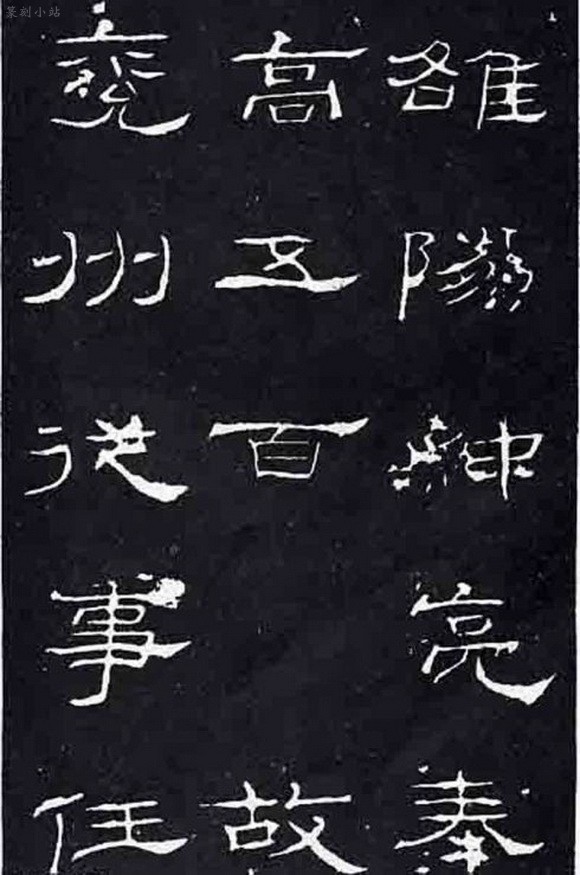 篆刻小站
雒陽种亮奉
高五百 故
兗州從事任